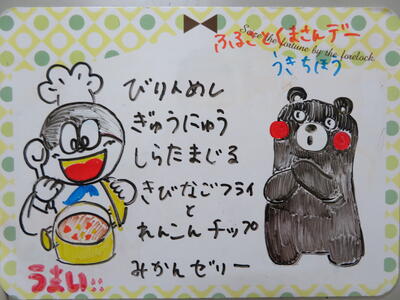 ふるさとくまさんデー
Seize the fortune by the forelock.
うきちほう
びりんめし
ぎゅうにゅう
しらたまじる
きびなごフライ
と
れんこんチップ
みかんゼリー
うまい!!